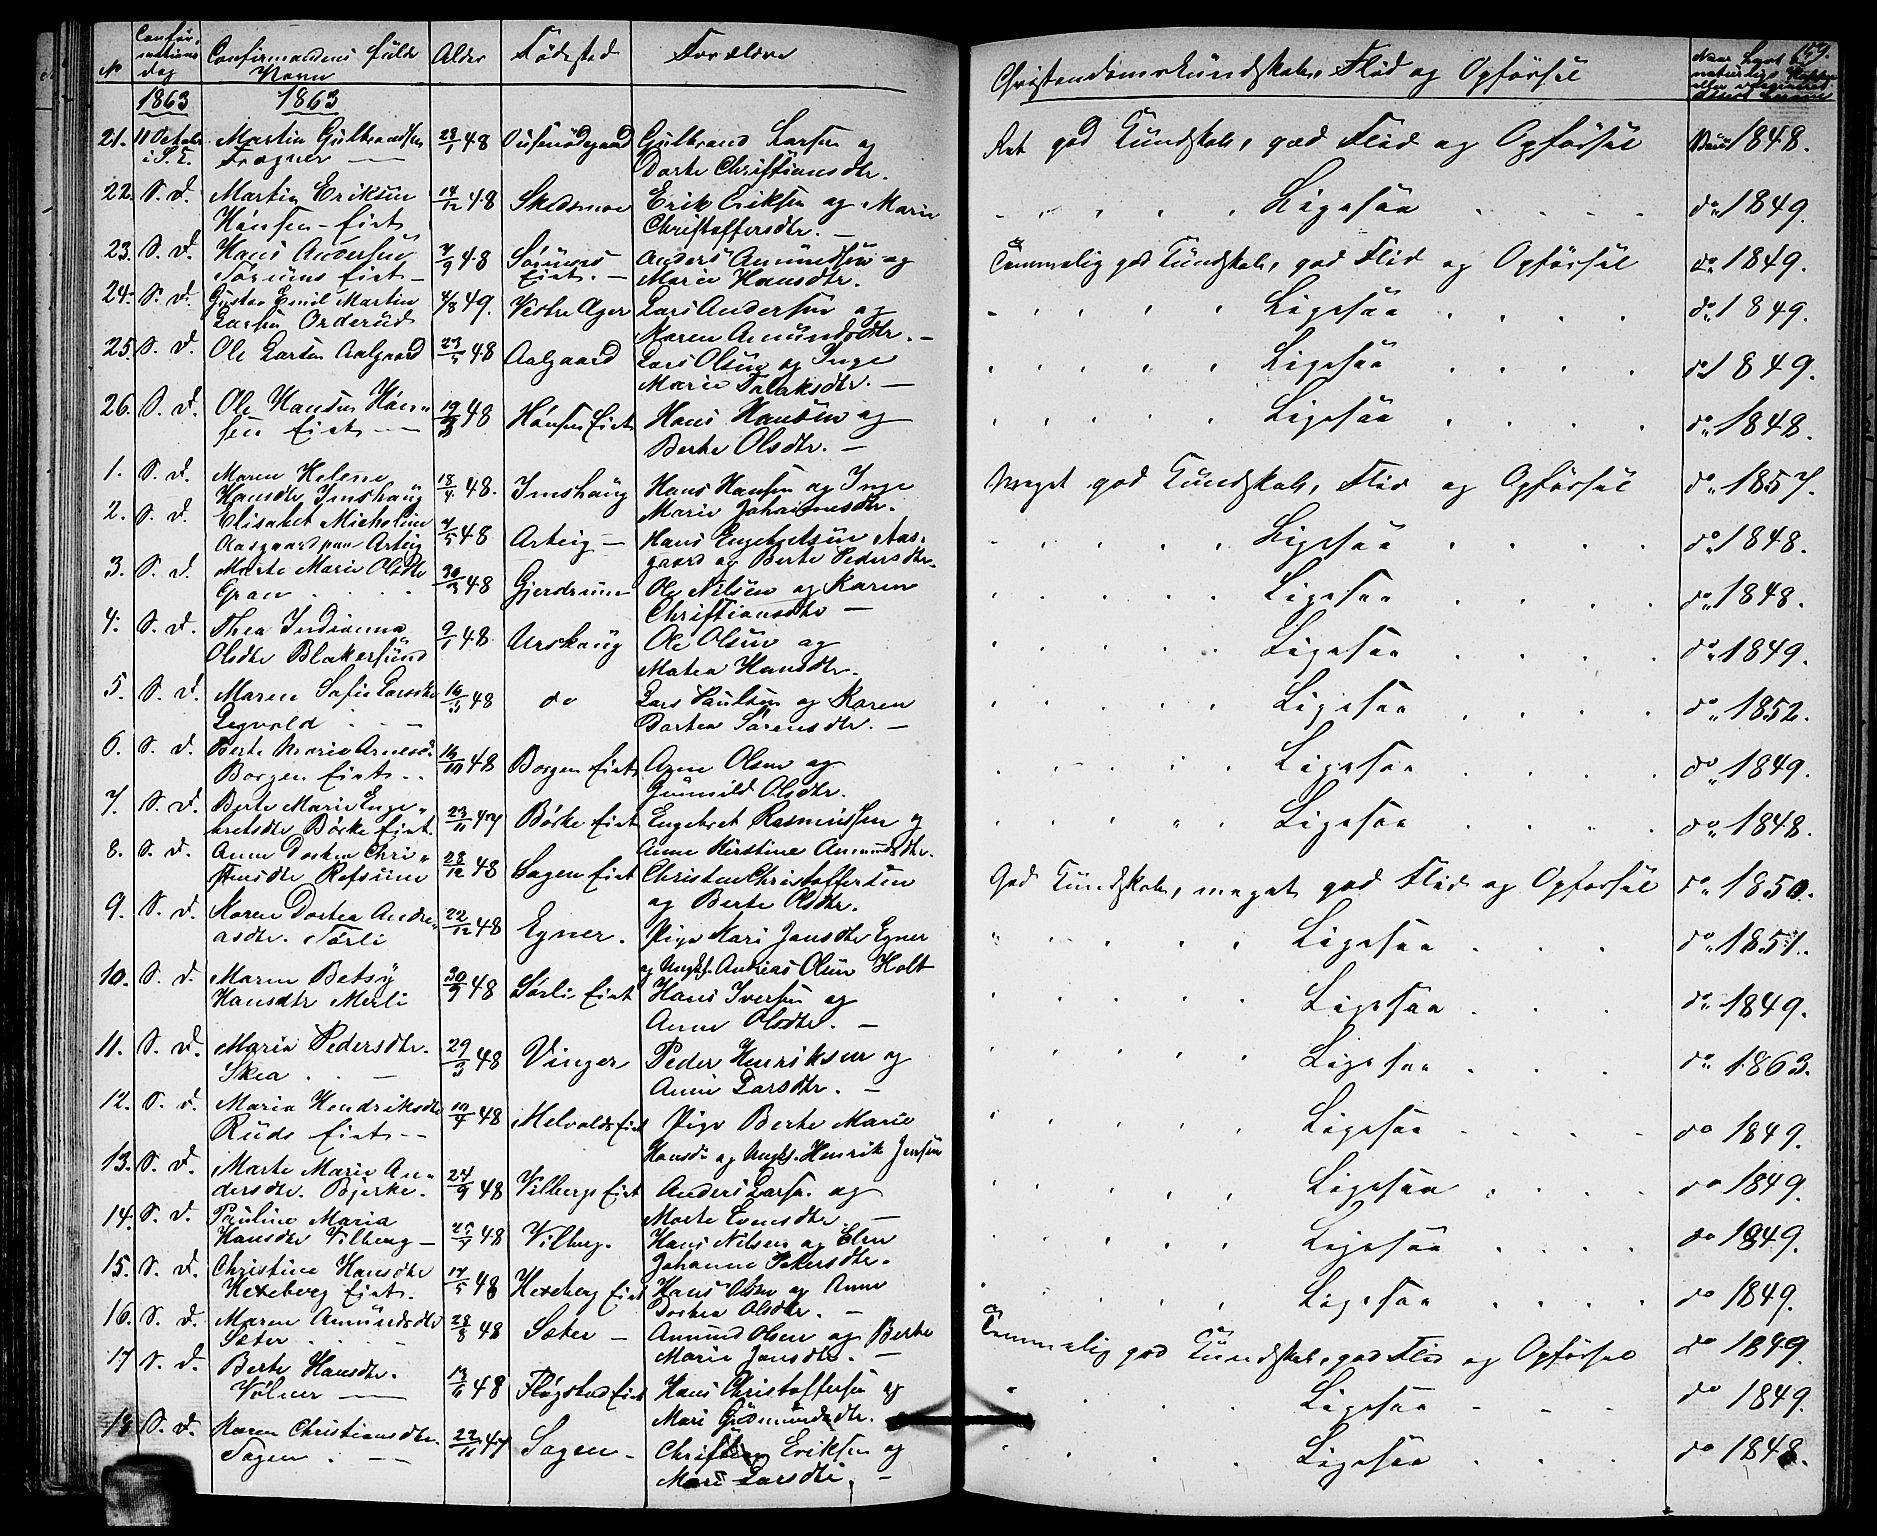 N
Confir-
mations
Dag
Confirmandens fulde
Navn
Alder
Födested
Forældre
Christendomskundskab, Flid og Opførsel
159.
Naar havt de
naturlige Kopper
eller vaccineret
1863
1863
21. 11 Octobr Martin Gulbrandsen 28/1 48 Gulbrand Larsen og Ret god Kundskab, god Flid og Opførsel Vacc 1848.
i S. K. Frogner — Dorte Christiansdtr.
22. S. d. Martin Eriksen 14/12 48 Skedsmoe Erik Eriksen og Marie Ligesaa do 1849.
Hansen-Eiet Christoffersdtr. —
23. S. d. Hans Andersen 7/9 48 Sörums Anders Amundsen og Temmelig god Kundskab, god Flid og Opførsel do 1849.
Sörums Eiet — Eiet. — Marie Hansdtr.
24. S. d. Gustav Emil Martin 4/8 49. Vestre Ager Lars Andersen og Ligesaa do 1849.
Larsen Orderud Maren Amundsdtr. —
25. S. d. Ole Larsen Aalgaard 23/5 48 Aalgaard Lars Olsen og Inge Ligesaa do 1849.
Marie Falaksdtr. —
26. S. d. Ole Hansen Høn- 19/3 48 Hönsen Eiet Hans Hansen og Ligesaa do 1848.
sen Eiet — Berte Olsdtr. —
1. S. d. Maren Helene 18/4 48. Imshaug Hans Hansen og Inge Meget god Kundskab, Flid og Opførsel do 1857.
Hansdtr Imshaug Marie Johannesdtr.
2. S. d. Elisabet Micholine 7/5 48 Arteig — Hans Engebretsen Aas- Ligesaa do 1848.
Aasgaard paa Arteig gaard og Berte Pedersdtr.
3. S. d. Marte Marie Olsdtr 30/3 48 Gjerdrum Ole Nilsen og Karen Ligesaa do 1848.
Gran Christiansdtr —
4. S. d. Thea Indianna 9/1 48 Urskoug Ole Olsen og Ligesaa do 1849.
Olsdtr Blakersund Matea Hansdtr.
5. S. d. Maren Sofie Larsdtr 16/3 48 do Lars Paulsen og Karen Ligesaa do 1852.
Legvold — Dortea Sörensdtr. —
6. S. d. Berte Marie Arnesd. 16/10 48 Borgen Eiet Arne Olsen og Ligesaa do 1849.
Borgen Eiet Gunnild Olsdtr.
7. S. d. Berte Marie Enge- 23/11 47 Börke Eiet Engebret Rasmussen og Ligesaa do 1848.
bretsdtr Börke Eiet. Anne Kirstine Amundsdtr.
8. S. d. Anne Dortea Chri- 28/12 48 Sagen Eiet Christen Christoffersen God Kundskab, meget god Flid og Opførsel do 1850.
stensdtr Refsum og Berte Olsdtr.
9. S. d. Karen Dortea Andre- 22/12 48 Egner. Pige Kari Jansdtr Egner Ligesaa do 1851.
asdtr. Sørli og Ungk. Andreas Olsen Holt
10. S. d. Maren Betsy 30/9 48 Sörli Eiet Hans Iversen og Ligesaa do 1849.
Hansdtr Merli Anne Olsdtr. —
11. S. d. Maria Pedersdtr. 29/3 48 Vinger Peder Henriksen og Ligesaa do 1863.
Skea — Anne Larsdtr. —
12. S. d. Maria Hendriksdtr 10/4 48 Melvolds Eiet Pige Berte Marie Ligesaa do 1849.
Ruds Eiet — Hansd. og Ungk. Henrik Jensen
13. S. d. Marte Marie An- 24/9 48 Vilbergs Eiet Anders Larsen. og Ligesaa do 1849.
dersdtr. Bjerke. Marte Evensdtr. —
14. S. d. Pauline Maria 48 Vilberg. Hans Nilsen og Elen Ligesaa do 1849.
Hansdtr Vilberg — Johanne Pedersdtr.
15. S. d. Christine Hansdtr 17/5 48 Hexeberg Eiet Hans Olsen og Anne Ligesaa do 1849.
Hexeberg Eiet. Dortea Olsdtr. —
16. S. d. Maren Amundsdtr 28/8 48 Sæter — Amund Olsen og Berte Temmelig god Kundskab, god Flid og Opførsel do 1849.
Sæter Marie Jansdtr. —
17 S. d. Berte Hansdtr. 13/6 48 Fløgstad Eiet Hans Christoffersen og Ligesaa do 1849.
Völner — Mari Gudmundsdtr.
18 S. d. Karen Christiansdtr. 22/11 47 Sagen — Christian Eriksen og Ligesaa do 1848.
Sagen — Mari Larsdtr. —